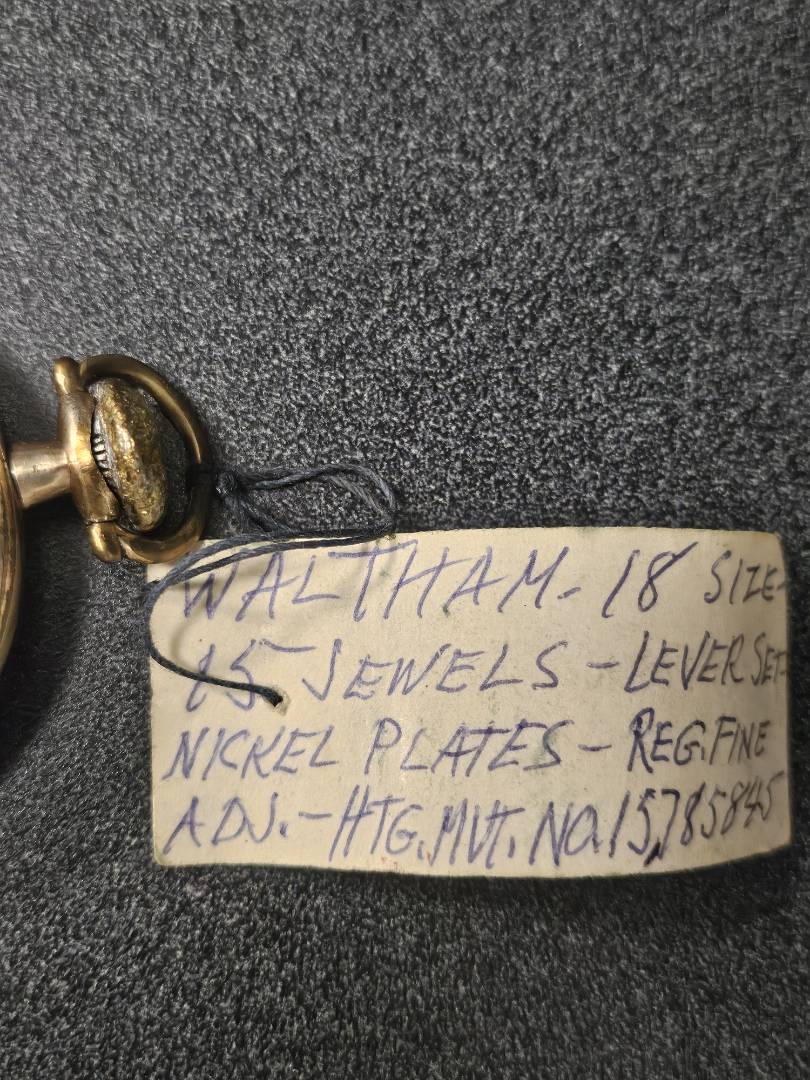 WALTHAM - 18 SIZE -
15 JEWELS - LEVER SET -
NICKEL PLATES - REG. FINE
ADJ. - HTG. MVT. NO. 15,785845